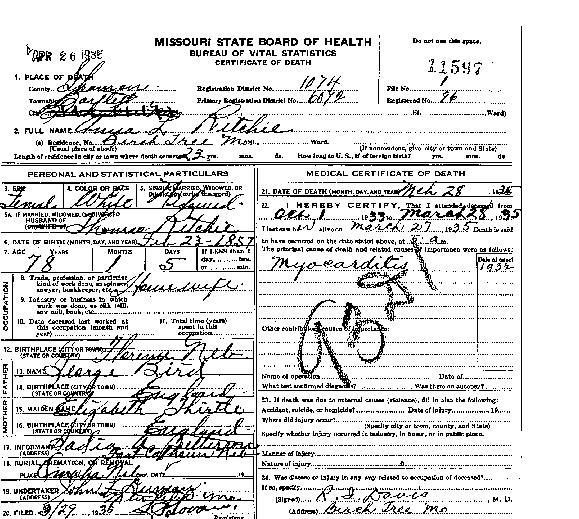 APR 26 1935
MISSOURI STATE BOARD OF HEALTH
BUREAU OF VITAL STATISTICS
CERTIFICATE OF DEATH
Do not use this space.
11587
1. PLACE OF DEATH
County Shannon Registration District No. 1074 File No.
Township Bartlett Primary Registration District No. Registered No.
St. Ward)
2. FULL NAME Anna L. Ritchie
(a) Residence, No. Birch Tree Mo. Ward.
(Usual place of abode) (If nonresident, give city or town and State)
Length of residence in city or town where death occurred 23 yrs. mos. ds. How long in U. S., if of foreign birth? yrs. mos. ds.
PERSONAL AND STATISTICAL PARTICULARS
3. SEX 4. COLOR OR RACE 5. SINGLE, MARRIED, WIDOWED, OR
Female White Widowed
5A. IF MARRIED, WIDOWED, OR DIVORCED
HUSBAND OF Thomas Ritchie
6. DATE OF BIRTH (MONTH, DAY, AND YEAR) Feb 23-1857
7. AGE YEARS MONTHS DAYS If LESS than
78 1 5
OCCUPATION
8. Trade, profession, or particular
kind of work done, as spinner,
sawyer, bookkeeper, etc. Housewife
9. Industry or business in which
work was done, as silk mill,
saw mill, bank, etc.
10. Date deceased last worked at 11. Total time (years)
this occupation (month and spent in this
year) occupation
12. BIRTHPLACE (CITY OR TOWN) Florence Neb
(STATE OR COUNTRY)
FATHER
13. NAME George Bird
14. BIRTHPLACE (CITY OR TOWN) England
(STATE OR COUNTRY)
MOTHER
15. MAIDEN NAME Elizabeth Thirtle
16. BIRTHPLACE (CITY OR TOWN) England
(STATE OR COUNTRY)
17. INFORMANT
(ADDRESS) Fort Calhoun Neb
18. BURIAL, CREMATION, OR REMOVAL
PLACE Omaha Neb DATE 19
19. UNDERTAKER John
(ADDRESS)
20. FILED 3/29 1935
Registrar
MEDICAL CERTIFICATE OF DEATH
21. DATE OF DEATH (MONTH, DAY, AND YEAR) Mch 28 1935
22. I HEREBY CERTIFY, That I attended deceased from
Oct 1 1933 to March 28 1935
I last saw her alive on March 27 1935 Death is said
to have occurred on the date stated above, at
The principal cause of death and related causes of importance were as follows:
Date of onset
Myocarditis 1932
Other contributory causes of importance:
Name of operation Date of
What test confirmed diagnosis? Was there an autopsy?
23. If death was due to external causes (violence), fill in also the following:
Accident, suicide, or homicide? Date of injury 19
Where did injury occur?
(Specify city or town, county, and State)
Specify whether injury occurred in industry, in home, or in public place.
Manner of injury
Nature of injury
24. Was disease or injury in any way related to occupation of deceased?
If so, specify
(Signed) R. S. Davis, M. D.
(Address) Birch Tree Mo